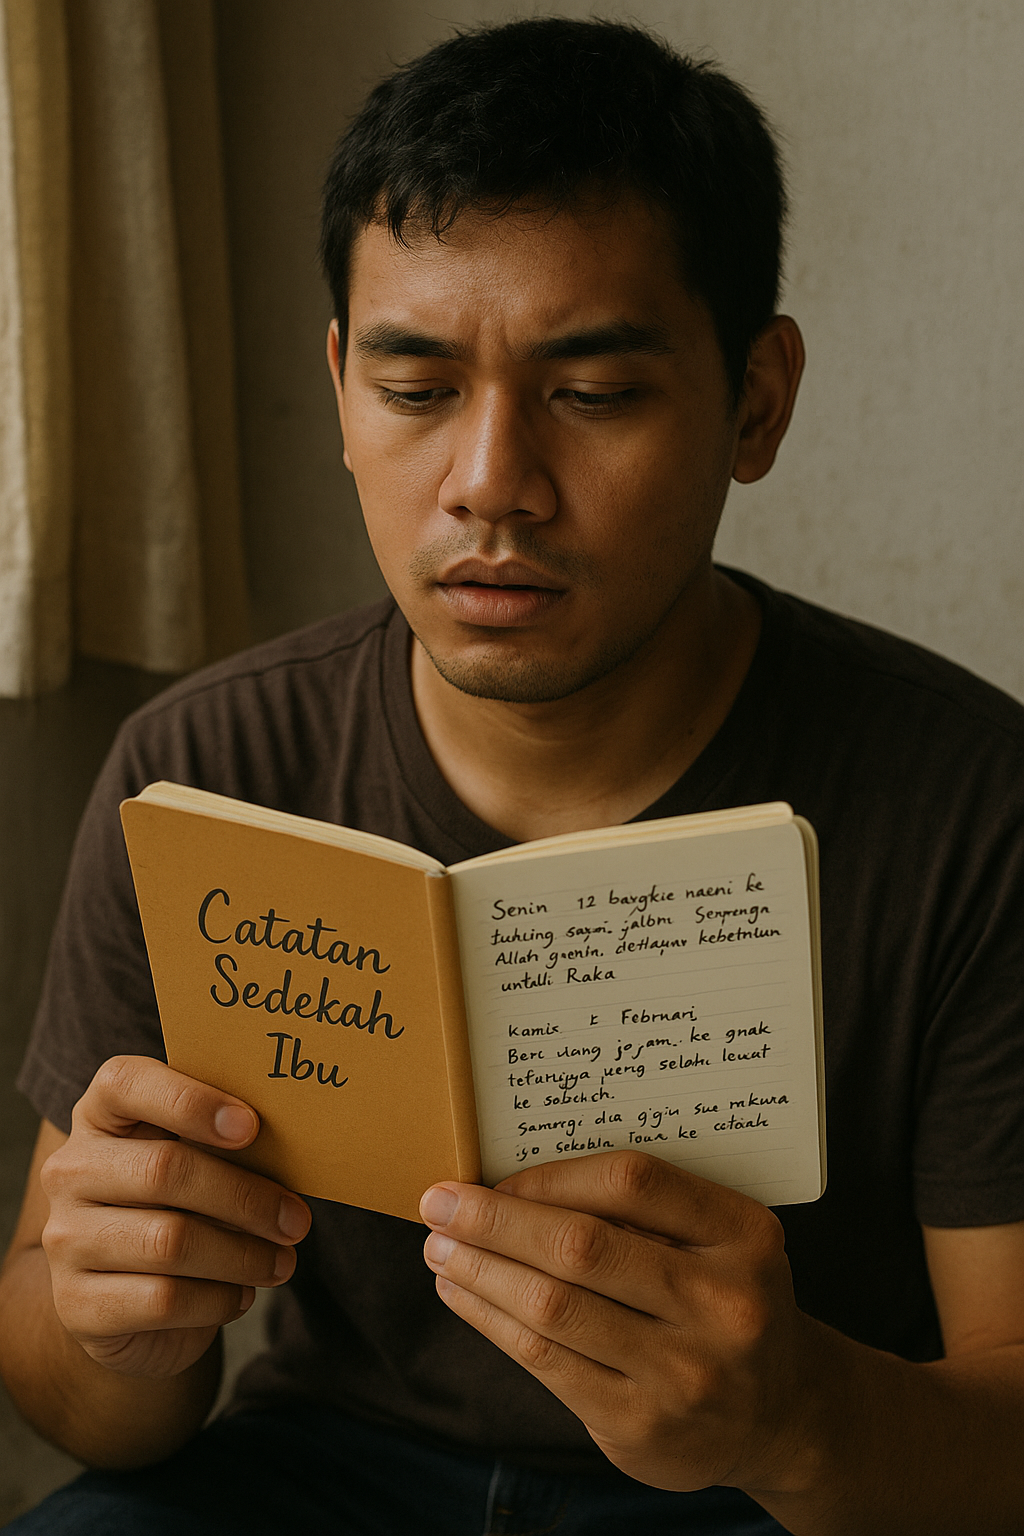 Catatan
Sedekah
Ibu
Senin 12 bavgkie naeni ke
tuhling saxni. jalbni Senprenga
Allah genin. detlayar kebetnlun
untalli Raka
Kamis. Februari,
Berc ulang jo,am.. ke gnak
tefurijya yerg selahi lewat
ke sobch ch.
Samergi dia gigin sue mkura
sekobln Toua ke cetaak